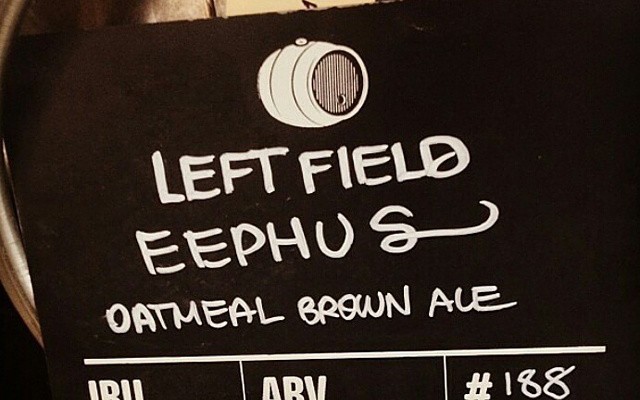 LEFT FIELD
EEPHUS
OATMEAL BROWN ALE
IBU ABV #188